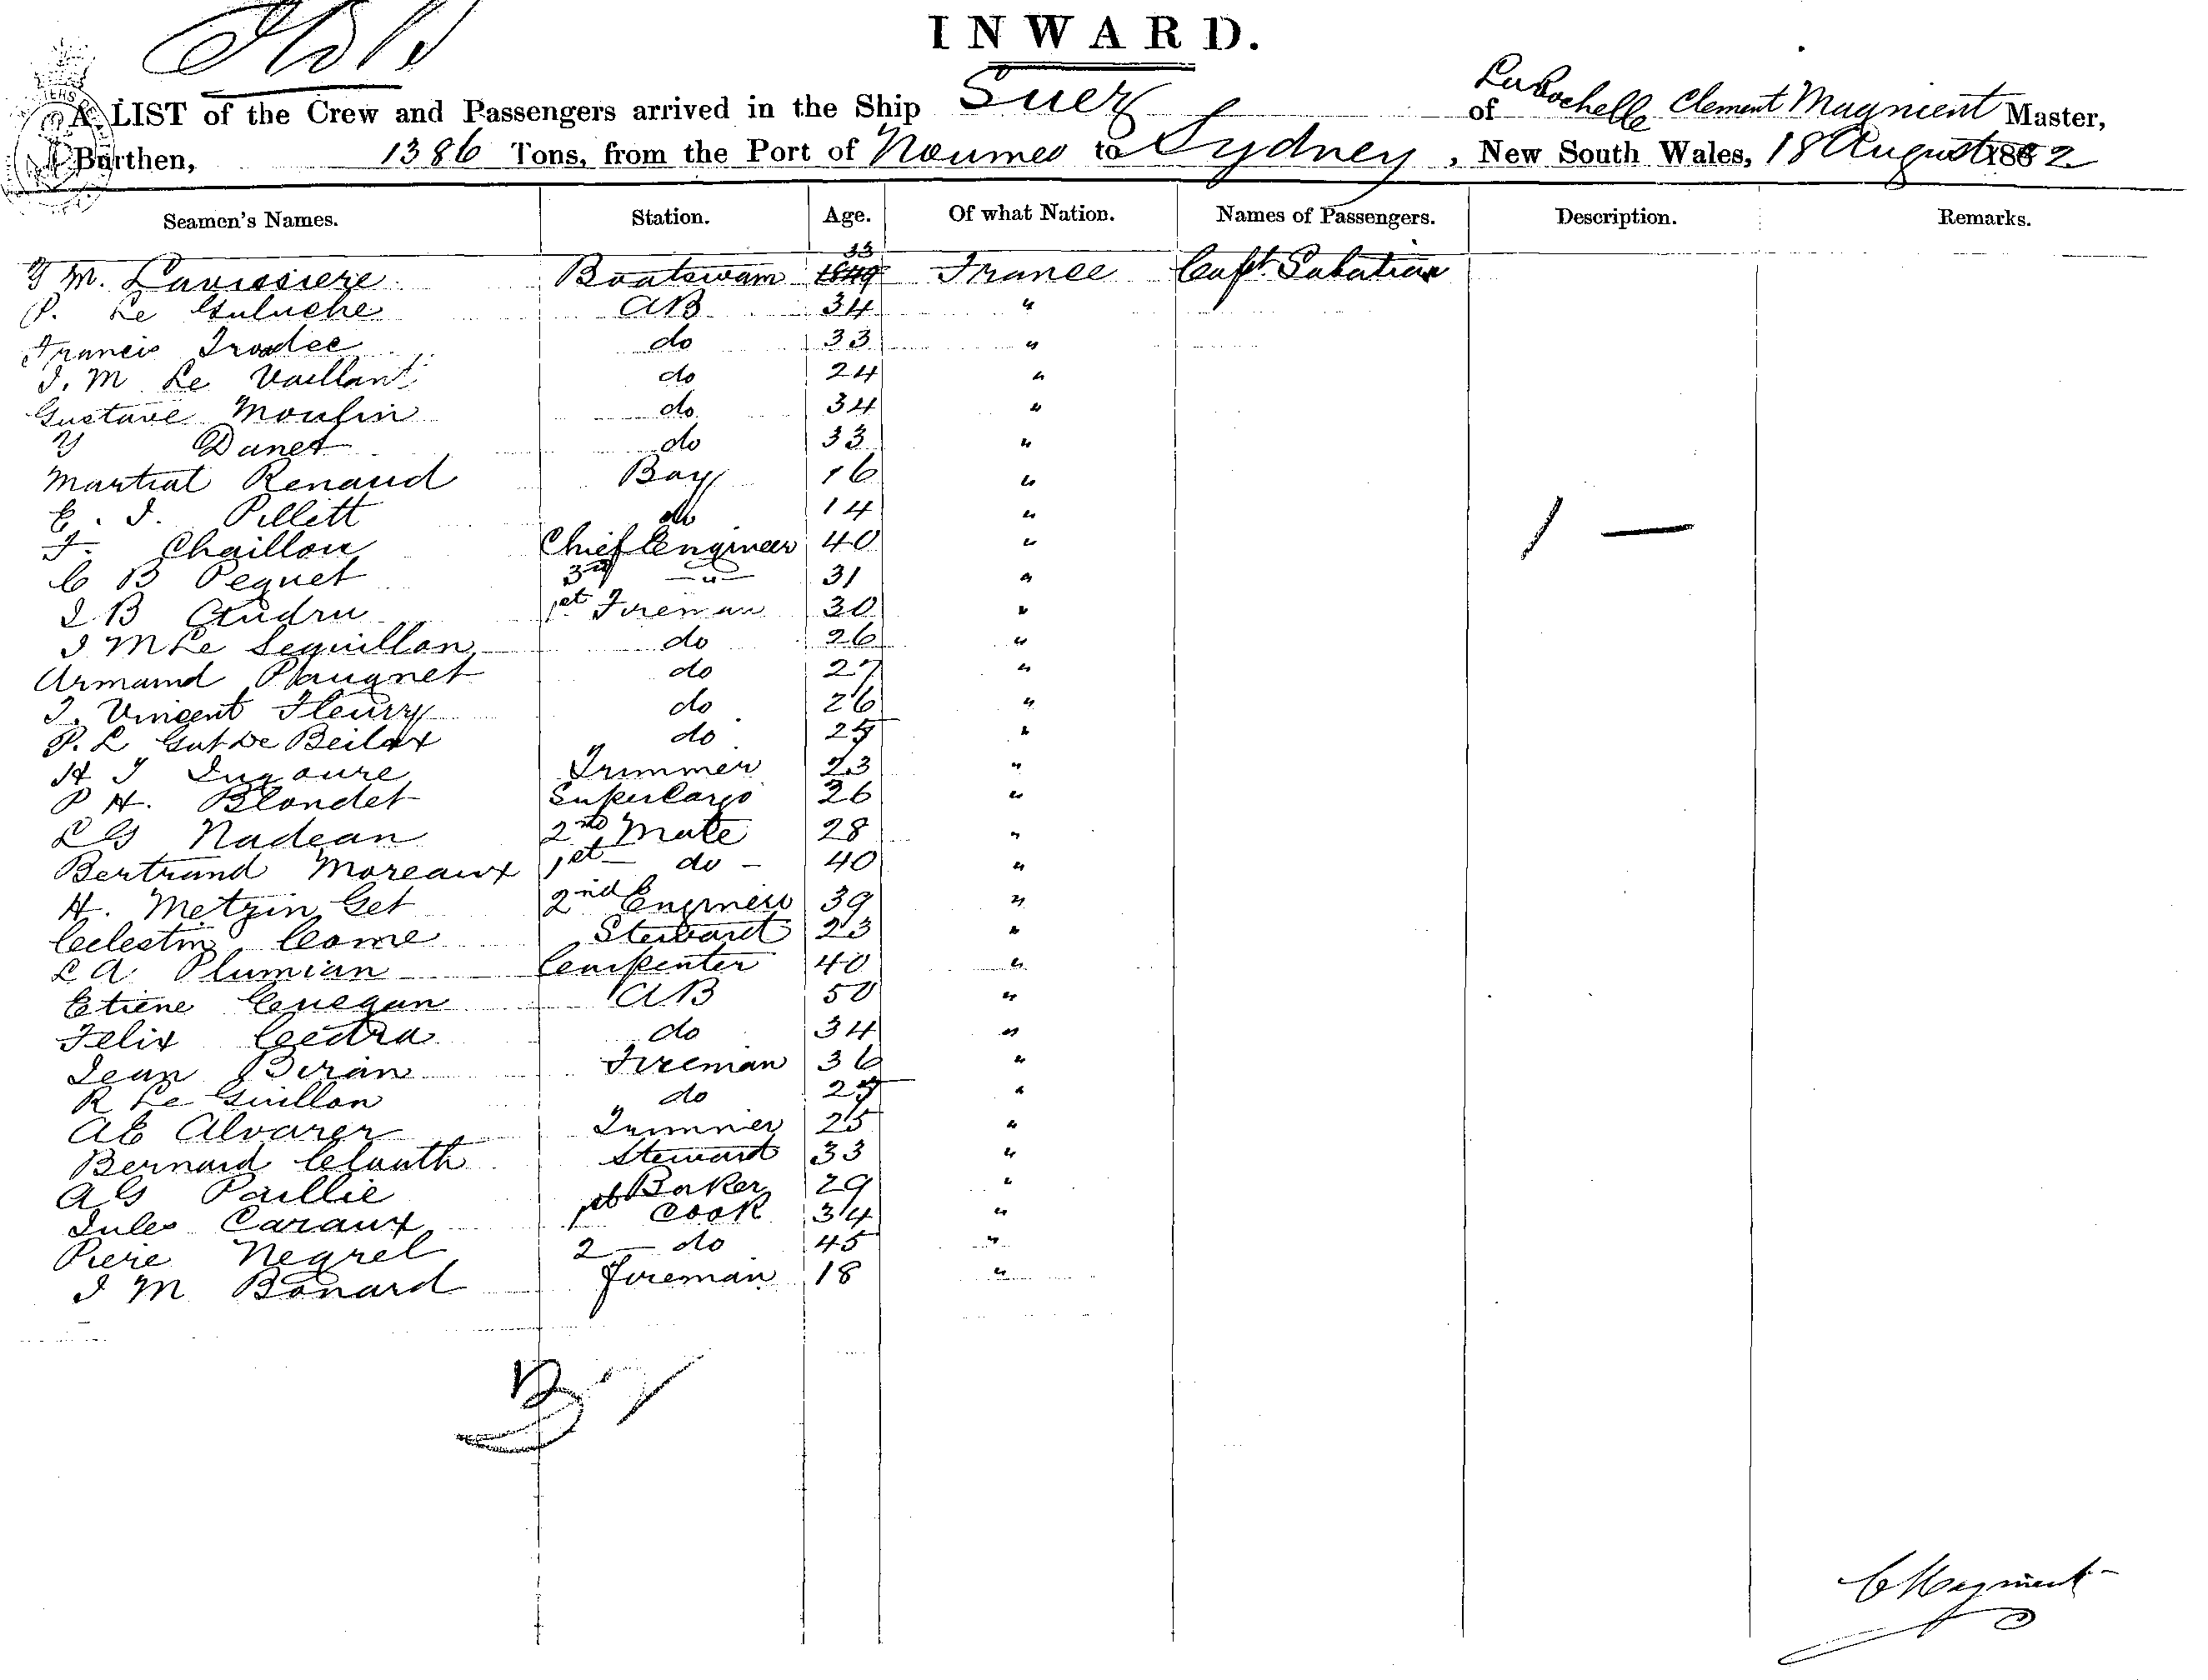 INWARD.
A LIST of the Crew and Passengers arrived in the Ship Suez of LaRochelle Clement Magnient Master,
Burthen, 1386 Tons, from the Port of Noumea to Sydney, New South Wales, 18 August 1882
Seamen's Names. Station. Age. Of what Nation. Names of Passengers. Description. Remarks.
33
Y M. Lavissiere Boatswain 1849 France Capt. Sabatier
P. Le Guluche AB 34 "
Francis Trodec do 33 "
J. M Le Vaillant do 24 "
Gustave Moulin do 34 "
Y Danet do 33 "
Martial Renaud Boy 16 "
E. J. Pillett do 14 " 1 —
F. Chaillou Chief Engineer 40 "
C B Pequet 3rd —"— 31 "
J B Audru 1st Fireman 30 "
J M Le Seguillon do 26 "
Armand Plauquet do 27 "
J. Vincent Fleury do 26 "
P. L Gut De Beilot do 25 "
H J Ingoure Trimmer 23 "
P H. Blondet SuperCargo 26 "
L G Nadean 2nd Mate 28 "
Bertrand Moreaux 1st — do — 40 "
H. Metzin Get 2nd Engineer 39 "
Celestin Come Steward 23 "
L A Plumian Carpenter 40 "
Etiene Cuegan AB 50 "
Felix Ceedra do 34 "
Jean Biran Fireman 36 "
R Le Guillon do 25 "
A E Alvarer Trimmer 25 "
Bernard Clauth Steward 33 "
A G Paillie Baker 29 "
Jules Caraux 1st Cook 34 "
Piere Negrel 2 — do 45 "
J M Bonard Fireman 18 "
C Magnient